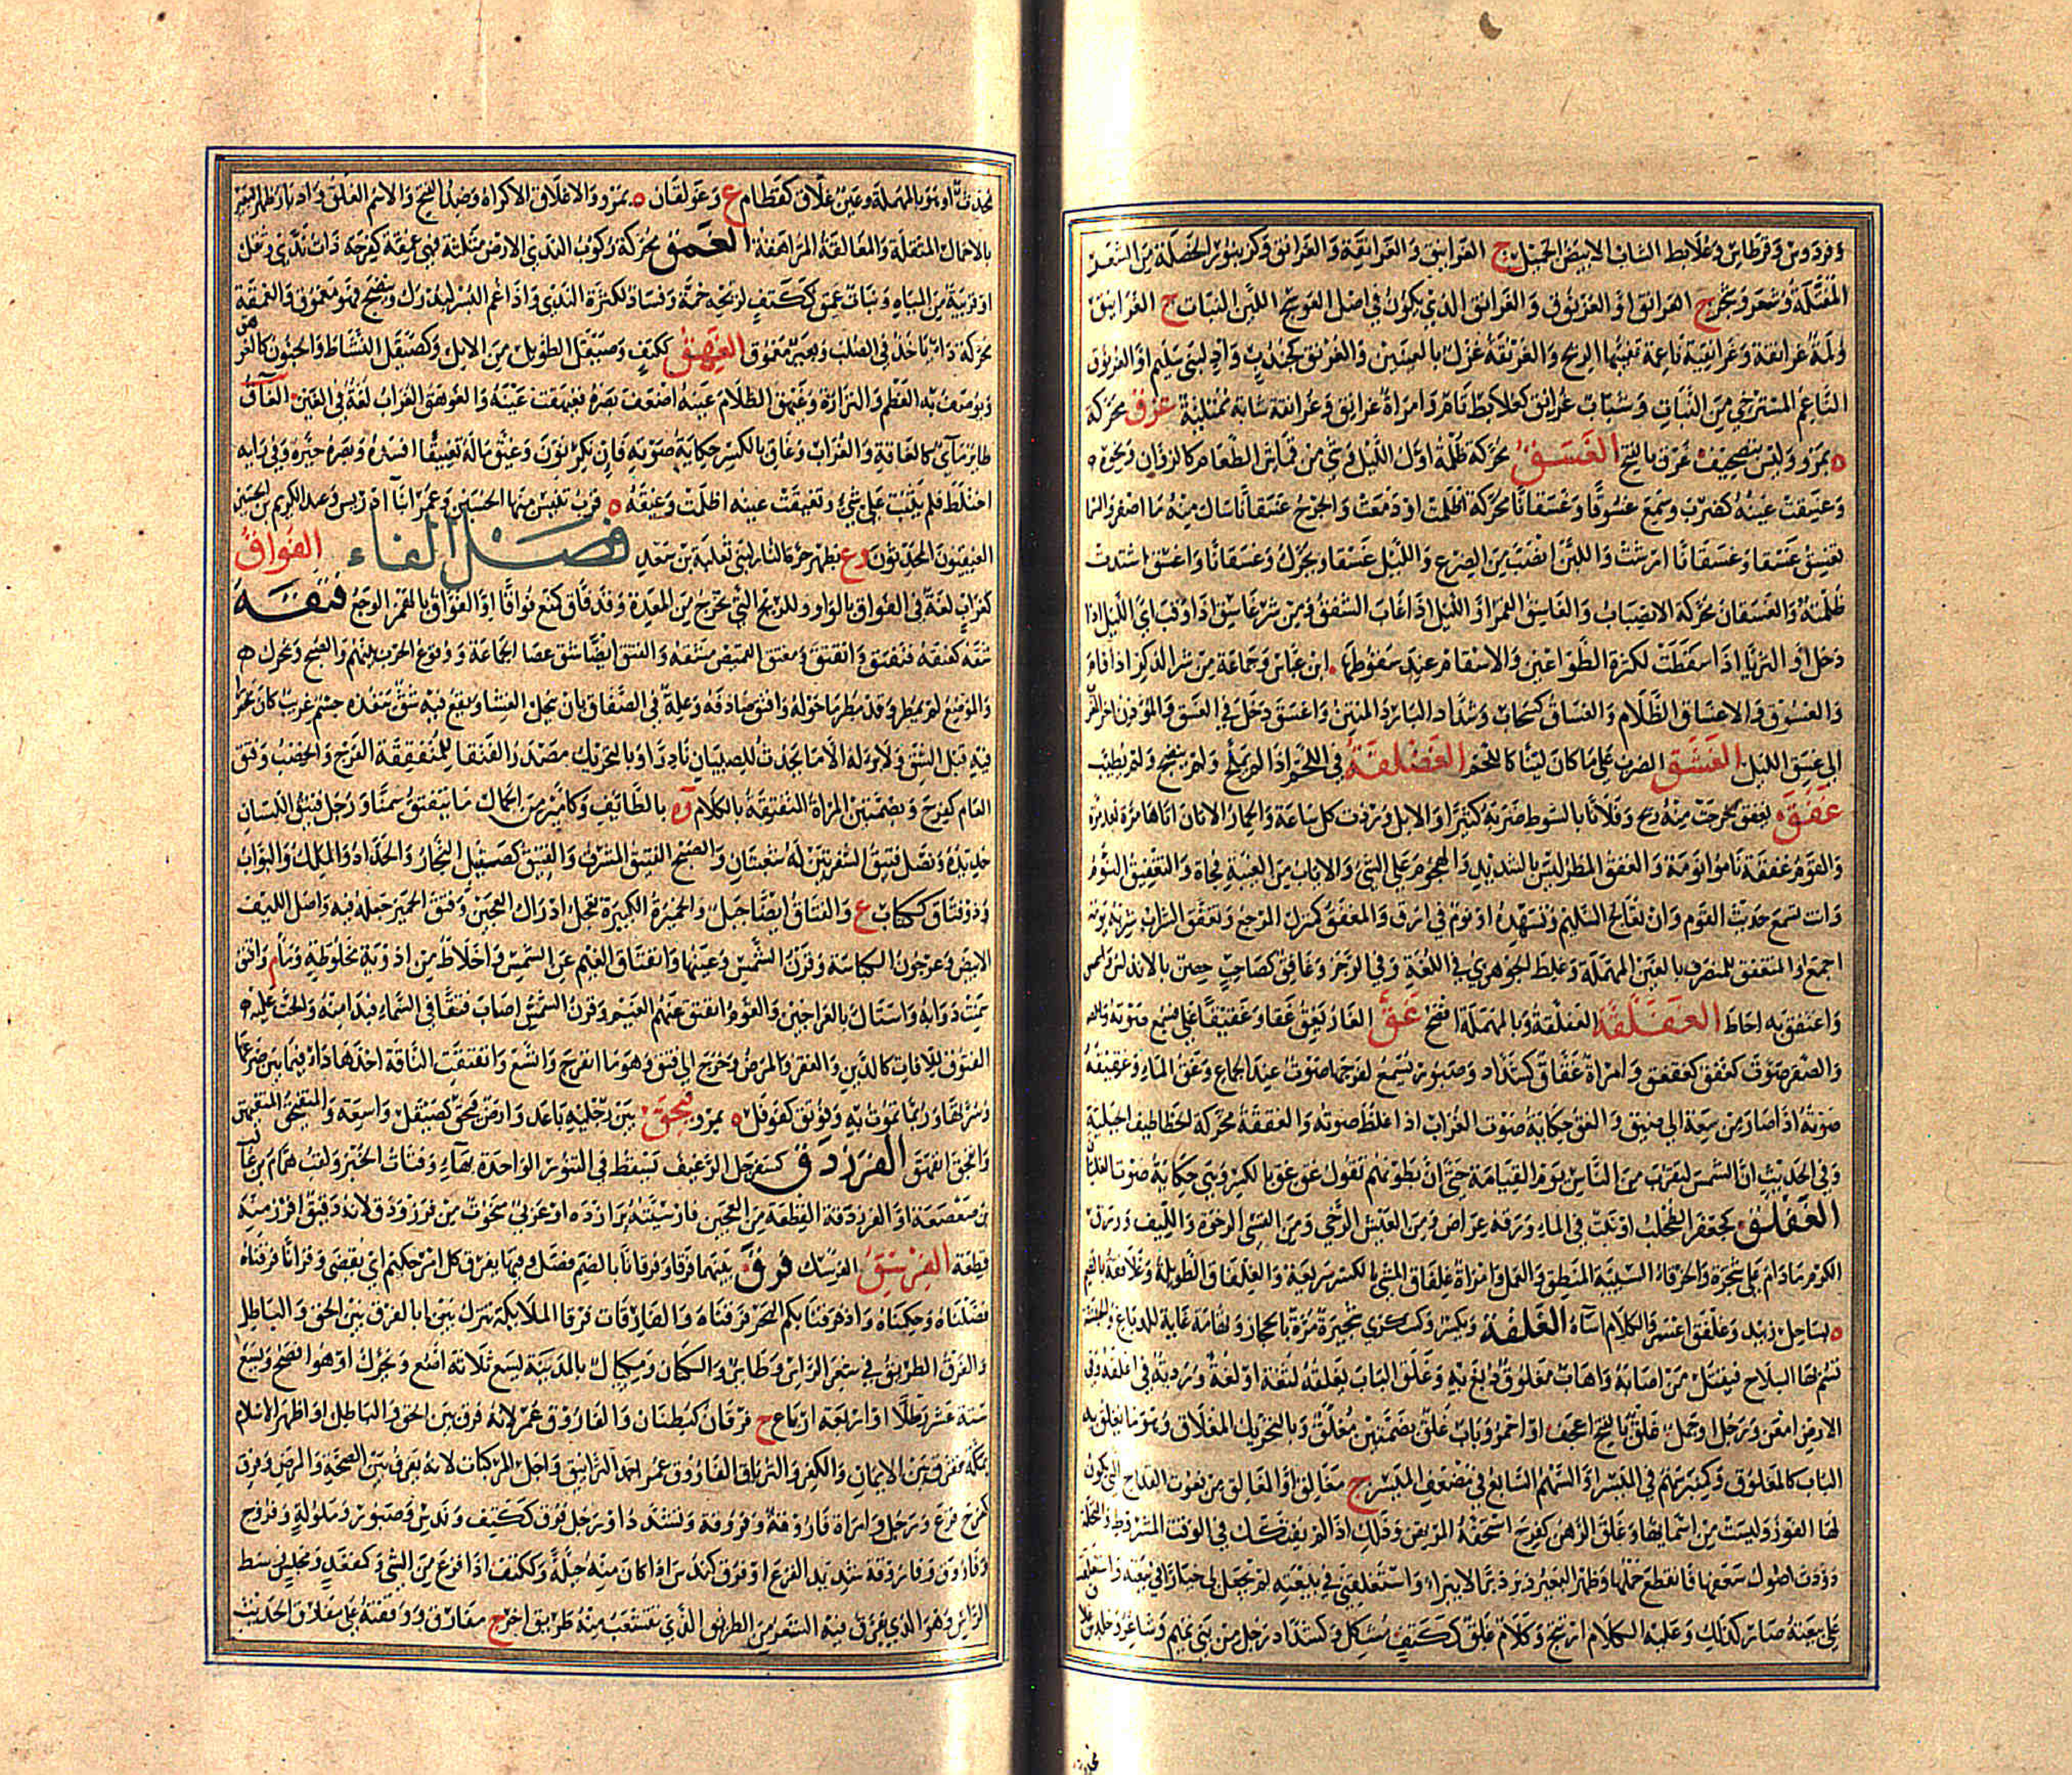 وفردوس وقرطاس وعلابط الشاب الابيض الجميل ج الغرانيق والغرانقة والغرانق وكزنبور الخصلة من الشعر
المفتلة وشعر وشجر ج الغرانق او الغرنوق والغرانق الذي يكون في اصل العوسج اللين النبات ج الغرانيق
ولمة غرانقة وغرانقية ناعمة تفيئها الريح والغرنقة غزل بالعينين والغرنق كجندب واد لبني سليم او الغرنوق
الناعم المستتر من النبات وشباب غرانق كعلابط تام وامراة غرانق وغرانقة شابة ممتلئة غزق محركة
ه بمرو وليس بتصحيف غرق بالفتح الغسق محركة ظلمة اول الليل وشئ من قماش الطعام كالزوان ونحوه
وغسقت عينه كضرب وسمع غسوقا وغسقانا محركة اظلمت او دمعت والجرح غسقانا سال منه ماء اصفر والسماء
تغسق غسقا وغسقانا ارشت واللبن انصب من الضرع والليل غسقا ويحرك وغسقانا واغسق اشتدت
ظلمته والغسقان محركة الانصباب والغاسق القمر او الليل اذا غاب الشفق ومن شر غاسق اذا وقب اي الليل اذا
دخل او الثريا اذا سقطت لكثرة الطواعين والاسقام عند سقوطها ابن عباس وجماعة من شر الذكر اذا قام
والغسوق والاغساق الاظلام والغساق كسحاب وشداد البارد والمنتن واغسق دخل في الغسق والمؤذن اخر المغرب
الي غسق الليل الغشق الضرب علي ما كان لينا كاللحم الغصلقة في اللحم اذا لم يملح ولم ينضج ولم يطيب
غفق يغفق خرجت منه ريح وفلانا بالسوط ضربه كثيرا والابل وردت كل ساعة والحمار الاتان اتاها مرة بعد مرة
والقوم غفقة ناموا نومة والغفق المطر ليس بالشديد والهجوم علي الشئ والاياب من الغيبة فجاة والتغفيق النوم
وانت تسمع حديث القوم وان تعالج السليم وتسهده او نوم في ارق والمغفق كمنزل المرجع وتغفق الشراب شربه يومه
اجمع او المنغفق المنصرف بالعين المهملة وغلط الجوهري في اللغة وفي الرجز وغافق كصاحب حصن بالاندلس
واغتفق به احاط الغفلقة العفلقة وبالمهملة افصح غق القار يغق غقا وغقيقا غلي فسمع صوته
والصقر صوت كغقق كغقغق وامراة غقاق كشداد وصبور يسمع لفرجها صوت عند الجماع وغق الماء وغقيقه
صوته اذا صار من سعة الي ضيق والغق حكاية صوت الغراب اذا غلظ صوته والغققة محركة الخطاطيف الجبلية
وفي الحديث ان الشمس لتقرب من الناس يوم القيامة حتي ان بطونهم تقول غق غق بالكسر وهي حكاية صوت الغليان
الغلفق كجعفر الطحلب او نبت في الماء ورقه عراض ومن العيش الرخي ومن القسي الرخوة والليف وورق
الكرم ما دام علي شجره والخرقاء السيئة المنطق والعمل وامراة غلفاق المشي بالكسر سريعة والغلفاق الطويلة وغلافقة بالضم
ه بساحل زبيد وغلفق الكلام اساءه الغلقة وبكسر وكسكري شجيرة مرة بالحجاز وتهامة غاية للدباغ والحبشة
تسم بها السلاح فيقتل من اصابه واهاب مغلوق دبغ به وغلق الباب يغلقه لثغة او لغة ردية في اغلقه وفي
الارض امعن ورجل او جمل غلق بالفتح اعجف او احمر وباب غلق بضمتين مغلق وبالتحريك المغلاق وهو ما يغلق به
الباب كالمغلوق وكمنبر سهم في الميسر او السهم السابع في مضعف الميسر ج مغالق او المغالق من نعوت القداح التي يكون
لها الفوز وليست من اسمائها وغلق الرهن كفرح استحقه المرتهن وذلك اذا لم يفتكك في الوقت المشروط والنخلة
دودت اصول سعفها فانقطع حملها وظهر البعير دبر دبرا لا يبرأ واستغلقني في بيعته لم يجعل لي خيارا في رده واستغلقت
علي بيعته صار كذلك وعليه الكلام ارتج وكلام غلق ككتف مشكل وكشداد رجل من بني تميم وشاعر وخالد بن غلاق
محدث او هو بالمهملة وعين غلاق كقطام ع وغولقان ه بمرو والاغلاق الاكراه وضد الفتح والاسم الغلق وادبار ظهر البعير
بالاحمال المثقلة والمغالقة المراهنة الغمق محركة ركوب الندي الارض مثلثة فهي غمقة كفرحة ذات ندي وثقل
او قريبة من المياه ونبات غمق ككتف لريحه خمة وفساد لكثرة الندي واذا غم البسر ليدرك وينضج فهو مغموق والغمقة
محركة داء ياخذ في الصلب وبعير مغموق الغيهق ككيف وصيقل الطويل من الابل وكصيقل النشاط والجنون كالغوهق
ويوصف به العظم والترارة وغيهق الظلام عينه اضعف بصره فغيهقت عينه والغوهق الغراب لغة في العين الغاق
طائر مائي كالغاقة والغراب وغاق بالكسر حكاية صوته فان نكر نون وغيق ماله تغييقا افسده وبصره حيره وفي رايه
اختلط فلم يثبت علي شئ وتغيقت عينه اظلمت وغيقة ه قرب تنيس منها الحسين وعمر ابنا ادريس وعبد الكريم بن الحسين
الغيقيون المحدثون وع بظهر حرة النار لبني ثعلبة بن سعد فصل الفاء الفواق
كغراب لغة في الفواق بالواو وللريح التي تخرج من المعدة وقد فاق كمنع فواقا او الفؤاق بالهمز الوجع فتقه
شقه كفتقه فتفتق وانفتق ومفتق القميص مشقه والفتق ايضا شق عصا الجماعة ووقوع الحرب بينهم والصبح ويحرك
والموضع لم يمطر وقد مطر ما حوله وافتق صادفه وعلة في الصفاق بان ينحل الغشاء ويقع فيه شئ ينفذه جسم غريب كان محصورا
فيه قبل الشق ولا برء له الا ما يحدث للصبيان نادرا وبالتحريك مصدر الفتقاء للمنفتقة الفرج والخصب وفتق
العام كفرح وبضمتين المراة المتفتقة بالكلام وه بالطائف وكامير من الجمال ما يتفتق سمنا ورجل فتيق اللسان
حديده ونصل فتيق الشفرتين له شعبتان والصبح الفتيق المشرق والفيتق كصيقل النجار والحداد والملك والبواب
وذو فتاق ككتاب ع والفتاق ايضا جبل والخميرة الكبيرة تعجل ادراك العجين وفتق الخمير جعله فيه واصل الليف
الابيض وعرجون الكباسة وقرن الشمس وعينها وانفتاق الغيم عن الشمس واخلاط من ادوية مخلوطة وماء م وافتق
سمنت دوابه واستاك بالعراجين والقوم انفتق عنهم الغيم وقرن الشمس اصاب فتقا في السماء فبدا منه والحت عليه
الفتوق للافات كالدين والفقر والمرض وخرج الي فتق وهو ما انفرج واتسع وانفتقت الناقة اخذها داء فيما بين ضرعها
وسرتها وربما تموت به وفوتق كفوفل ه بمرو فحق بين رجليه باعد وارض فيحق كصيقل واسعة
وانفحق انفهق الفرزدق كسفرجل الرغيف يسقط في التنور الواحدة بهاء وفتات الخبز ولقب همام بن غالب
بن صعصعة او الفرزدقة القطعة من العجين فارسيته برازده او عربي منحوت من فرز ودق لانه دقيق افرز منه
قطعة الفرسق الفرسك فرق بينهما فرقا وفرقانا بالضم فصل وفيها يفرق كل امر حكيم اي يقضي وقرانا فرقناه
فصلناه وحكمناه واذ فرقنا بكم البحر فرقناه والفارقات فرقا الملايكة تنزل بالفرق بين الحق والباطل
والفرق الطريق في شعر الراس وطائر والكتان ومكيال بالمدينة يسع ثلاثة اصع ويحرك او هو افصح ويسع
ستة عشر رطلا او اربعة ارباع ج فرقان كبطنان والفاروق عمر لانه فرق بين الحق والباطل او اظهر الاسلام
بمكة ففرق بين الايمان والكفر والترياق الفاروق عمر احمد الترايق واجل المركبات لانه يفرق بين الصحة والمرض وفرق
كفرح فزع ورجل وامراة فاروقة وفروقة وتشدد او رجل فرق ككتف وندس وصبور وملولة وفروج
وفاروق وفاروقة شديد الفزع او فرق كندس اذا كان منه جبلة وككتف اذا فزع من الشئ وكمقعد ومجلس وسط
الراس وهو الذي يفرق فيه الشعر ومن الطريق الذي يتشعب منه طريق اخر ج مفارق ووقفته علي مفارق الحديث